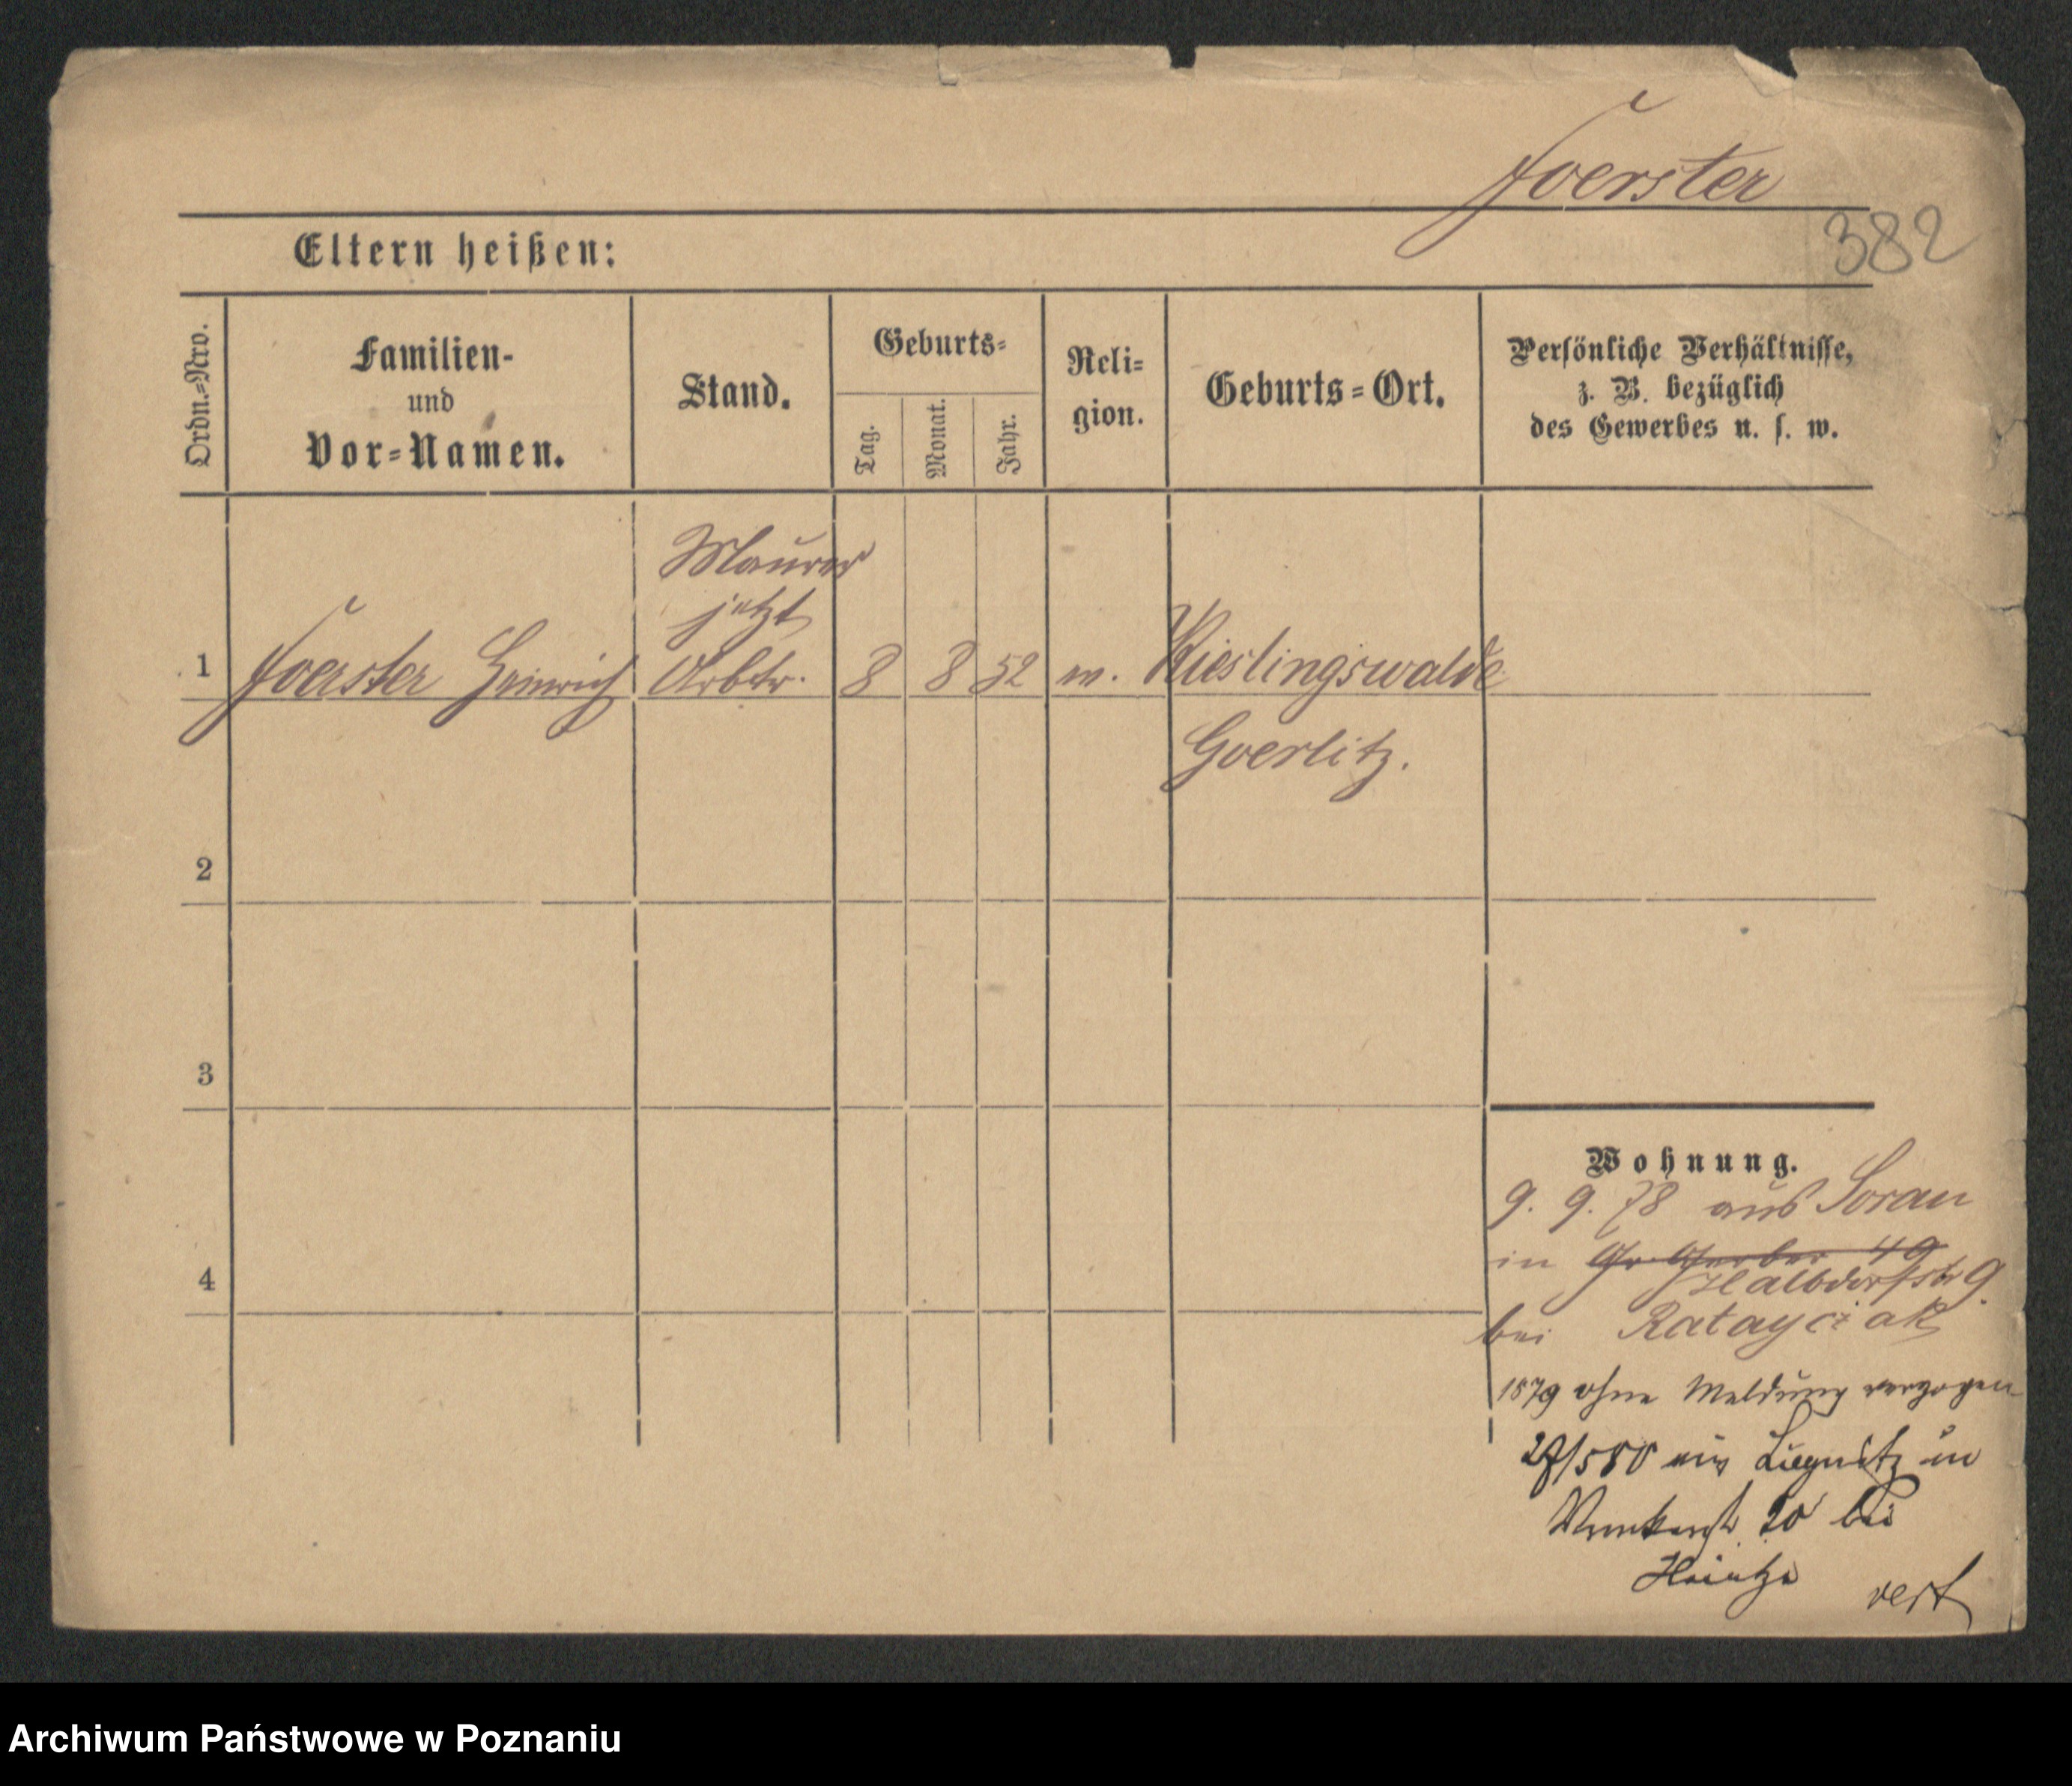 Foerster
382
Eltern heißen:
Ordn.=Nro.
Familien-
und
Vor=Namen.
Stand.
Geburts=
Tag.
Monat.
Jahr.
Reli=
gion.
Geburts=Ort.
Persönliche Verhältnisse,
z. B. bezüglich
des Gewerbes u. s. w.
Maurer
jetzt
1 Foerster Heinrich Arbtr. 8 8 52 Kieslingswalde
Goerlitz.
2
3
4
Wohnung.
9. 9. 78 aus Soran
in Gr Gerber 49
Halbdorfstr 9.
bei Ratayczak
1879 ohne Meldung verzogen
aus Liegnitz in
20 bei
Heintze
vert
Archiwum Państwowe w Poznaniu